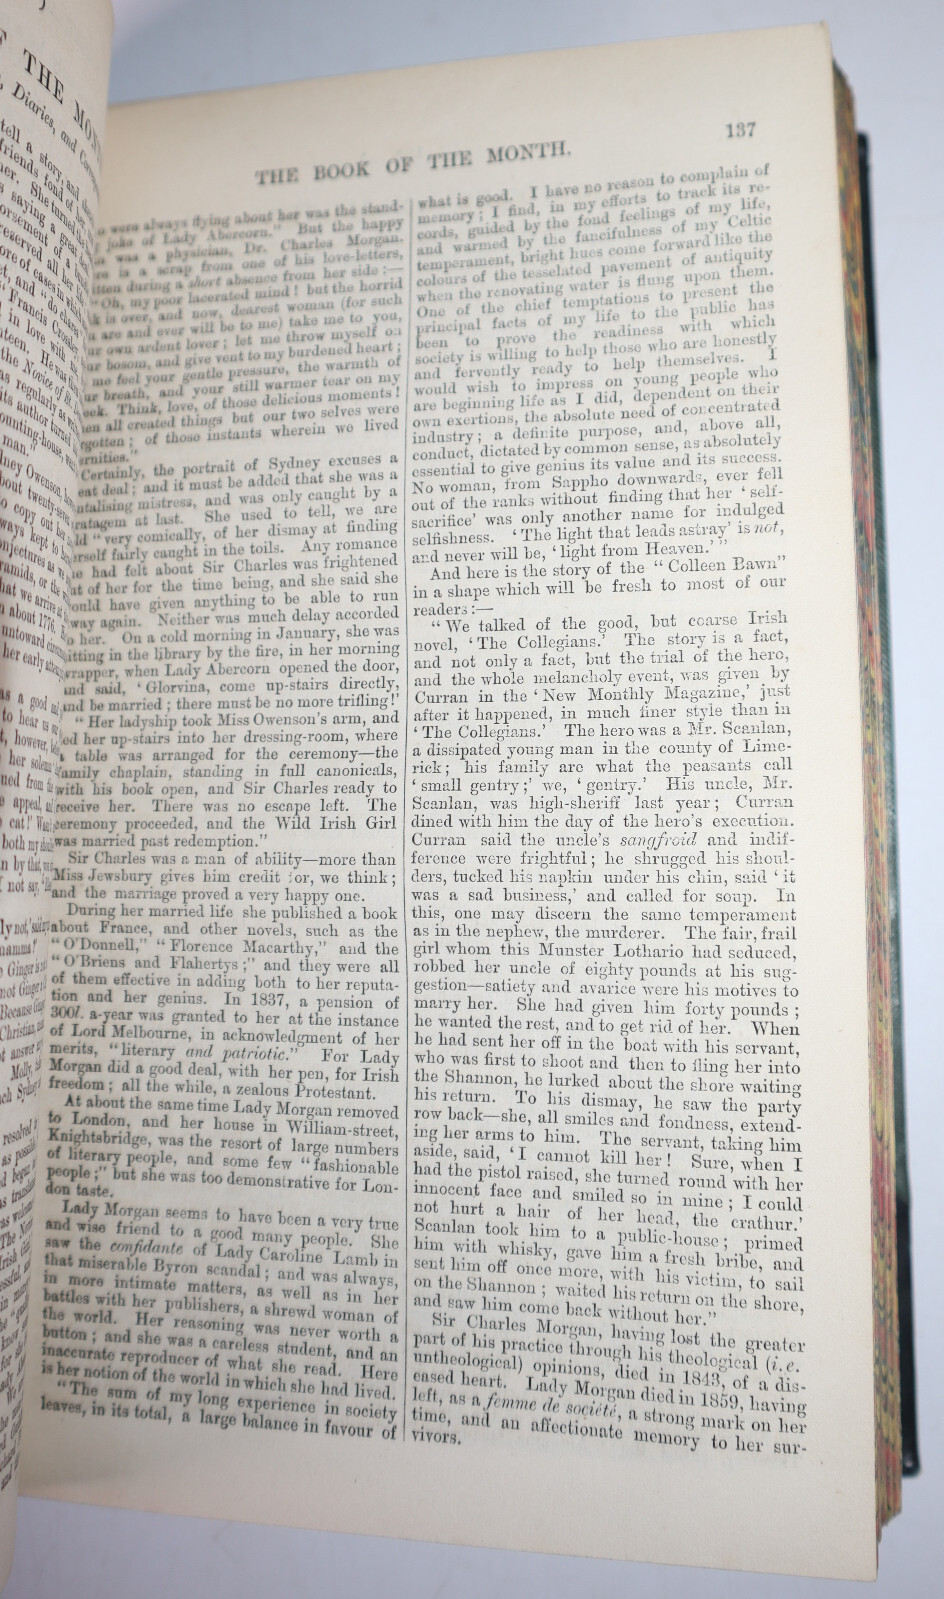 THE MON
Diaries, and
tell a story, and
friends fond of
her. She turned the
saying a great
reserved all her
ore of cases in which
Francis Crossley
in love with
the Novice of St.
as regularly as
its author turned
ounting-house,
man."
dney Owenson,
about twenty-seven
o copy out her
ways kept to
onjectures as
ramids, or the
hat we arrive at
about 1776,
untoward
her early
as a good
to hear us
however,
her solemn
ued from the
appeal, and
cat!'
both my
n by that,
not say,
ly not,' said
mamma?'
Ginger is
not Ginger
Because
Christian,
t answer
Molly,
ach Sydney
resolved
as possible
THE BOOK OF THE MONTH.
137
were always flying about her was the stand-
joke of Lady Abercorn." But the happy
was a physician, Dr. Charles Morgan.
is a scrap from one of his love-letters,
itten during a short absence from her side:—
"Oh, my poor lacerated mind! but the horrid
k is over, and now, dearest woman (for such
are and ever will be to me) take me to you,
ur own ardent lover; let me throw myself on
ur bosom, and give vent to my burdened heart;
me feel your gentle pressure, the warmth of
ur breath, and your still warmer tear on my
eek. Think, love, of those delicious moments!
en all created things but our two selves were
gotten; of those instants wherein we lived
ernities."
Certainly, the portrait of Sydney excuses a
eat deal; and it must be added that she was a
ntalising mistress, and was only caught by a
ratagem at last. She used to tell, we are
ld "very comically, of her dismay at finding
erself fairly caught in the toils. Any romance
e had felt about Sir Charles was frightened
ut of her for the time being, and she said she
ould have given anything to be able to run
way again. Neither was much delay accorded
o her. On a cold morning in January, she was
itting in the library by the fire, in her morning
wrapper, when Lady Abercorn opened the door,
and said, 'Glorvina, come up-stairs directly,
and be married; there must be no more trifling!'
"Her ladyship took Miss Owenson's arm, and
ed her up-stairs into her dressing-room, where
a table was arranged for the ceremony—the
family chaplain, standing in full canonicals,
with his book open, and Sir Charles ready to
receive her. There was no escape left. The
ceremony proceeded, and the Wild Irish Girl
was married past redemption."
Sir Charles was a man of ability—more than
Miss Jewsbury gives him credit for, we think;
and the marriage proved a very happy one.
During her married life she published a book
about France, and other novels, such as the
"O'Donnell," "Florence Macarthy," and the
"O'Briens and Flahertys;" and they were all
of them effective in adding both to her reputa-
tion and her genius. In 1837, a pension of
300l. a-year was granted to her at the instance
of Lord Melbourne, in acknowledgment of her
merits, "literary and patriotic." For Lady
Morgan did a good deal, with her pen, for Irish
freedom; all the while, a zealous Protestant.
At about the same time Lady Morgan removed
to London, and her house in William-street,
Knightsbridge, was the resort of large numbers
of literary people, and some few "fashionable
people;" but she was too demonstrative for Lon-
don taste.
Lady Morgan seems to have been a very true
and wise friend to a good many people. She
saw the confidante of Lady Caroline Lamb in
that miserable Byron scandal; and was always,
in more intimate matters, as well as in her
battles with her publishers, a shrewd woman of
the world. Her reasoning was never worth a
button; and she was a careless student, and an
inaccurate reproducer of what she read. Here
is her notion of the world in which she had lived.
"The sum of my long experience in society
leaves, in its total, a large balance in favour of
what is good. I have no reason to complain of
memory; I find, in my efforts to track its re-
cords, guided by the fond feelings of my life,
and warmed by the fancifulness of my Celtic
temperament, bright hues come forward like the
colours of the tesselated pavement of antiquity
when the renovating water is flung upon them.
One of the chief temptations to present the
principal facts of my life to the public has
been to prove the readiness with which
society is willing to help those who are honestly
and fervently ready to help themselves. I
would wish to impress on young people who
are beginning life as I did, dependent on their
own exertions, the absolute need of concentrated
industry; a definite purpose, and, above all,
conduct, dictated by common sense, as absolutely
essential to give genius its value and its success.
No woman, from Sappho downwards, ever fell
out of the ranks without finding that her 'self-
sacrifice' was only another name for indulged
selfishness. 'The light that leads astray' is not,
and never will be, 'light from Heaven.'"
And here is the story of the "Colleen Bawn"
in a shape which will be fresh to most of our
readers:—
"We talked of the good, but coarse Irish
novel, 'The Collegians.' The story is a fact,
and not only a fact, but the trial of the hero,
and the whole melancholy event, was given by
Curran in the 'New Monthly Magazine,' just
after it happened, in much finer style than in
'The Collegians.' The hero was a Mr. Scanlan,
a dissipated young man in the county of Lime-
rick; his family are what the peasants call
'small gentry;' we, 'gentry.' His uncle, Mr.
Scanlan, was high-sheriff last year; Curran
dined with him the day of the hero's execution.
Curran said the uncle's sangfroid and indif-
ference were frightful; he shrugged his shoul-
ders, tucked his napkin under his chin, said 'it
was a sad business,' and called for soup. In
this, one may discern the same temperament
as in the nephew, the murderer. The fair, frail
girl whom this Munster Lothario had seduced,
robbed her uncle of eighty pounds at his sug-
gestion—satiety and avarice were his motives to
marry her. She had given him forty pounds;
he wanted the rest, and to get rid of her. When
he had sent her off in the boat with his servant,
who was first to shoot and then to fling her into
the Shannon, he lurked about the shore waiting
his return. To his dismay, he saw the party
row back—she, all smiles and fondness, extend-
ing her arms to him. The servant, taking him
aside, said, 'I cannot kill her! Sure, when I
had the pistol raised, she turned round with her
innocent face and smiled so in mine; I could
not hurt a hair of her head, the crathur.'
Scanlan took him to a public-house; primed
him with whisky, gave him a fresh bribe, and
sent him off once more, with his victim, to sail
on the Shannon; waited his return on the shore,
and saw him come back without her."
Sir Charles Morgan, having lost the greater
part of his practice through his theological (i.e.
untheological) opinions, died in 1843, of a dis-
eased heart. Lady Morgan died in 1859, having
left, as a femme de société, a strong mark on her
time, and an affectionate memory to her sur-
vivors.